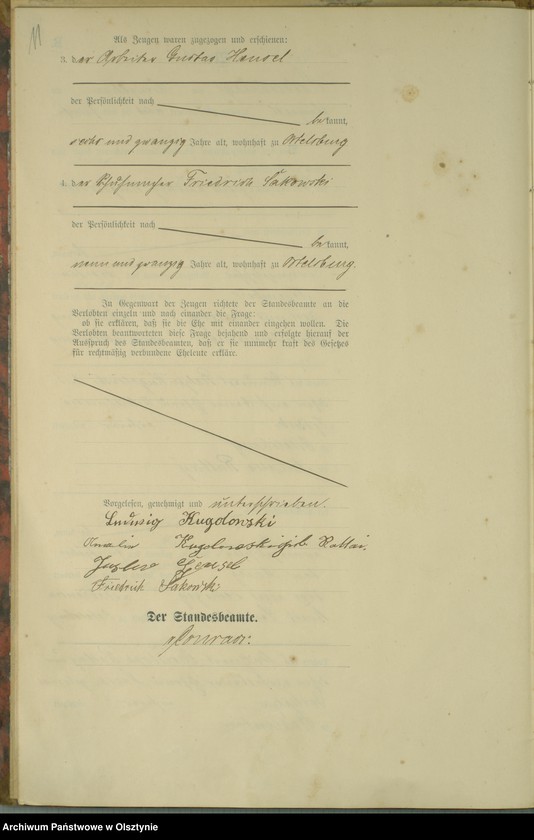 11
Als Zeugen waren zugezogen und erschienen:
3. der Arbeiter Gustav Hensel
der Persönlichkeit nach
bekannt,
sechs und zwanzig Jahre alt, wohnhaft zu Ortelsburg
4. der Schuhmacher Friedrich Sakowski
der Persönlichkeit nach
bekannt,
neun und zwanzig Jahre alt, wohnhaft zu Ortelsburg.
In Gegenwart der Zeugen richtete der Standesbeamte an die
Verlobten einzeln und nach einander die Frage:
ob sie erklären, daß sie die Ehe mit einander eingehen wollen. Die
Verlobten beantworteten diese Frage bejahend und erfolgte hierauf der
Ausspruch des Standesbeamten, daß er sie nunmehr kraft des Gesetzes
für rechtmäßig verbundene Eheleute erkläre.
Vorgelesen, genehmigt und unterschrieben.
Ludwig Kugdowski
Amalie Rattai.
Gustav Hensel
Friedrich Sakowski
Der Standesbeamte.
Conrad.
Archiwum Państwowe w Olsztynie